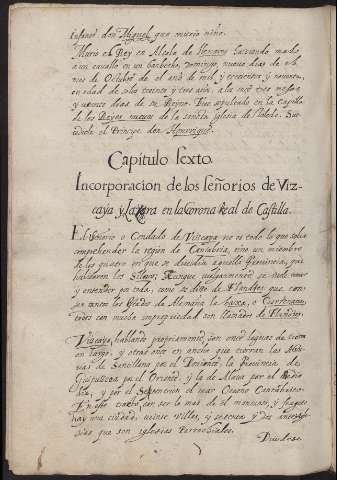 Infante don Miguel que murio niño.
Murio el Rey en Alcala de Henares haziendo mal a
a un cavallo en un barbecho, Domingo, nueve dias de el
mes de Octubre de el año de mil y trecientos y noventa,
en edad de solos treinta y tres años, a los once
y veinte dias de su Reyno. Fue sepultado en la Capilla
de los Reyes nuevos de la sancta iglesia de Toledo. Su-
cediole el Principe don Henrrique.
Capitulo sexto.
Incorporacion de los señorios de Viz-
caya y Lara en la Corona Real de Castilla.
El Señorio o Condado de Vizcaya no es todo lo que suele
comprehender la region de Cantabria, sino un miembro
de los quatro en que se dividia aquella Provincia, que
Aunque vulgarmente se suele nombrar
y entender por toda, como se dize de Flandes que con
ser tantos los Estados de Alemaña la baxa, o
todos con mucha impropriedad son llamados de Flandes.
Vizcaya, hablando propriamente, son once leguas de tierra
en largo, y otras tantas en ancho que cierran las Astu-
rias de Santillana por el Poniente, la Provincia de
Guipuzcoa por el Oriente, y la de Alava por el Medio
dia, y por el Septentrion el mar Oceano Cantabrico.
En este trato, con ser lo mas de el montuoso, y fragoso
hay una ciudad, veinte villas, y setenta y dos anteigle-
sias que son iglesias Parrochiales.
Dividese